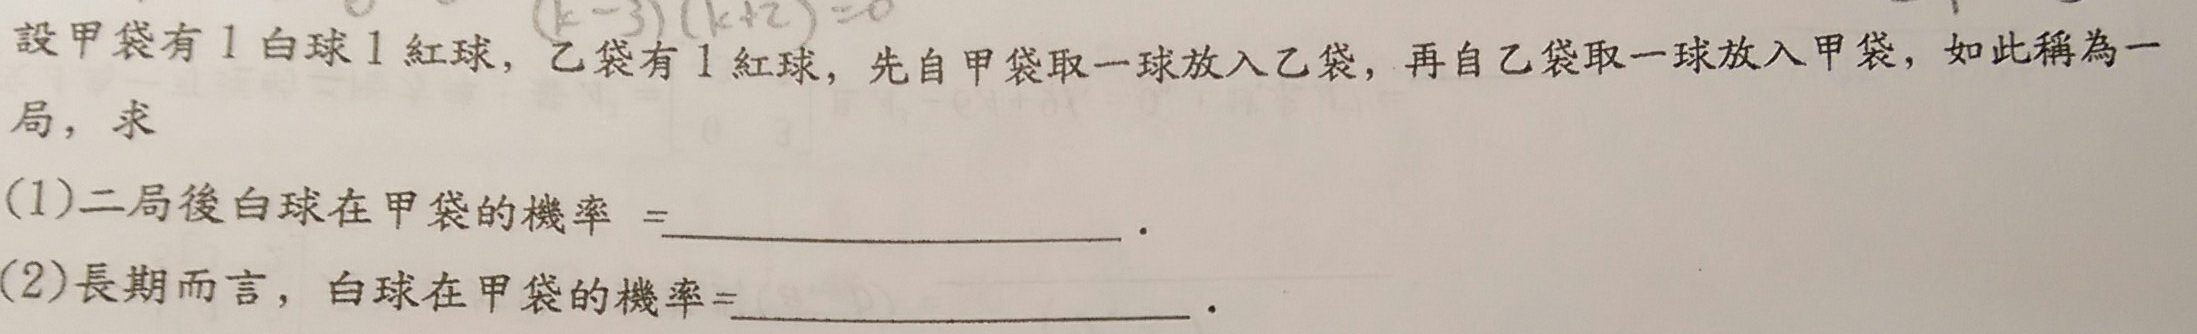 (k-3)(k+2)=0
設甲袋有 1 白球 1 紅球，乙袋有 1 紅球，先自甲袋取一球放入乙袋，再自乙袋取一球放入甲袋，如此稱為一
局，求
(1)二局後白球在甲袋的機率 =__________．
(2)長期而言，白球在甲袋的機率=__________．